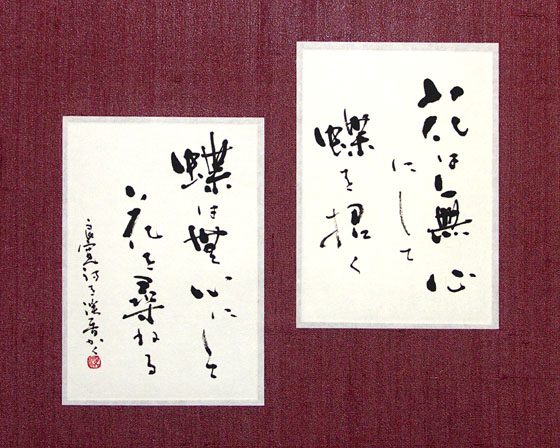 花は無心
にして
蝶を招く
蝶は無心にして
花を尋ねる
良寛詩を
かく